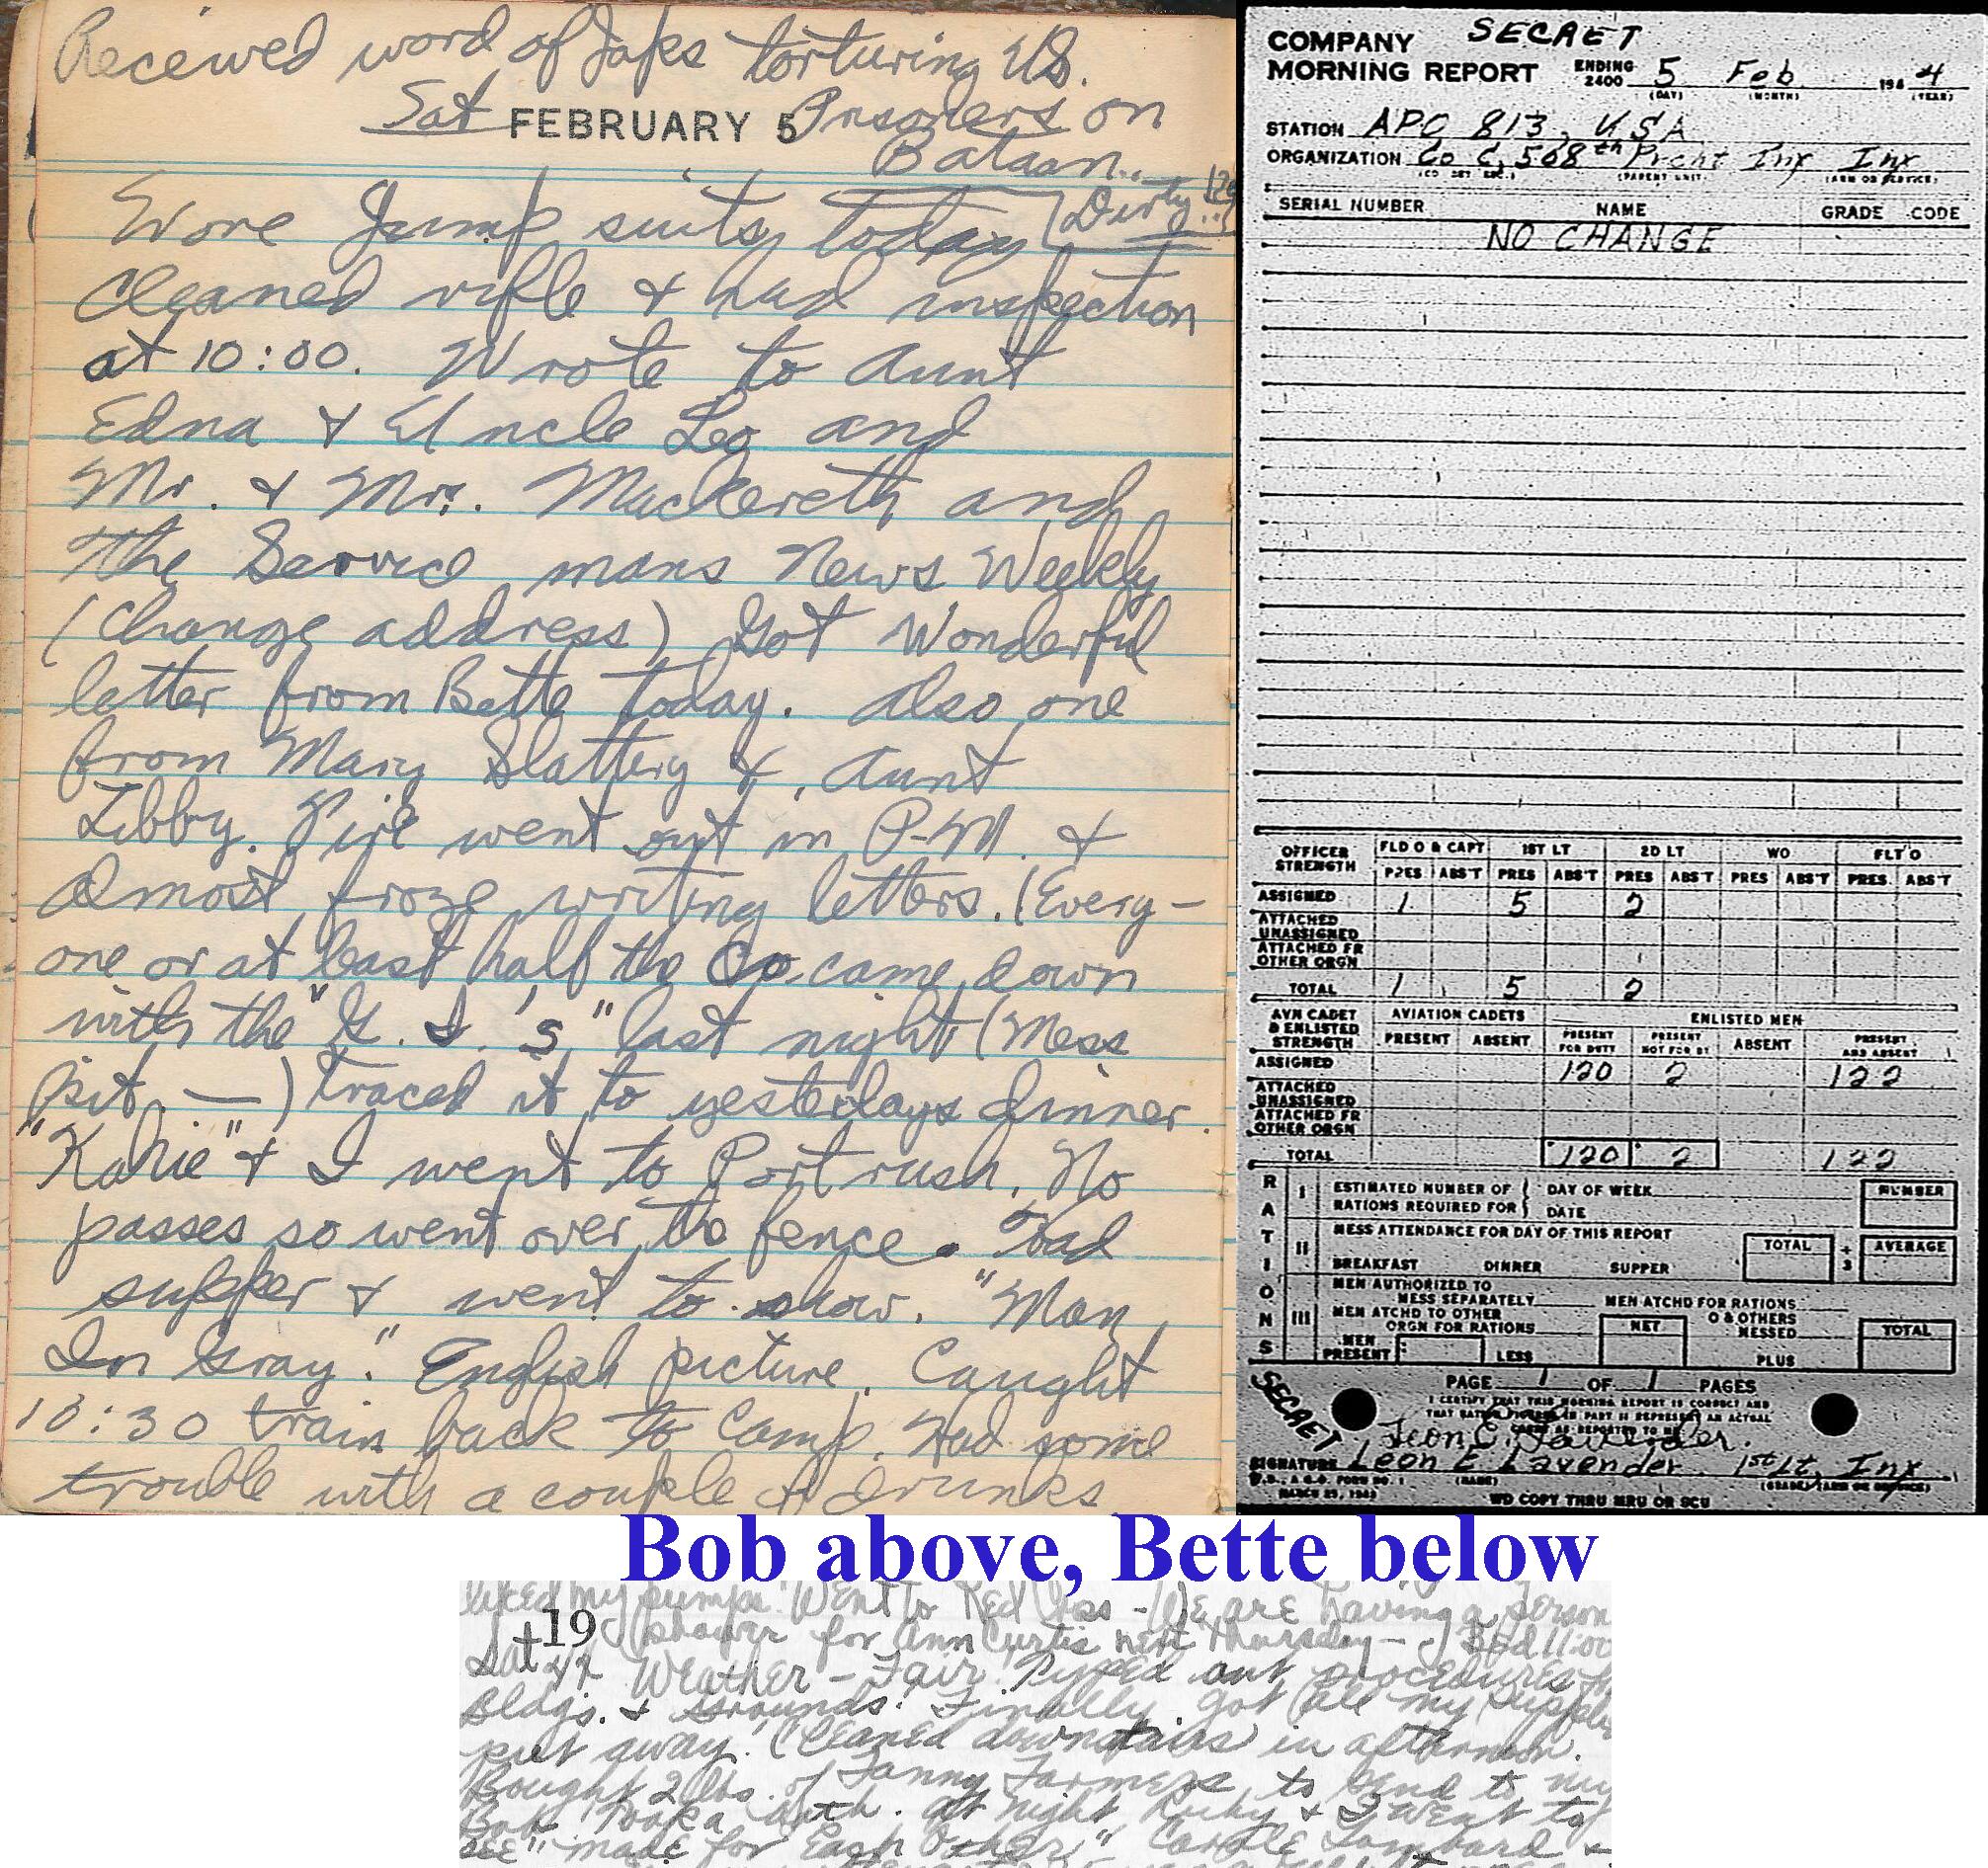 Received word of Japs torturing U.S.
Sat FEBRUARY 5 Prisoners on
Bataan..
(Dirty
Wore Jump suits today
cleaned rifle & had inspection
at 10:00. Wrote to Aunt
Edna & Uncle Leo and
Mr. & Mrs. Mackereth and
the Service mans News Weekly
(Change address) Got Wonderful
letter from Bette today. Also one
from Mary Slattery & Aunt
Libby. Fire went out in P-M. &
almost froze writing letters. (Every-
one or at least half the Co came down
with the "G. I.'s" last night (Mess
kit —) traced it to yesterdays dinner.
& I went to Portrush. No
passes so went over the fence. Had
supper & went to show. "Man
In Gray." English picture. Caught
10:30 train back to Camp. Had some
trouble with a couple of drunks
SECRET
COMPANY
MORNING REPORT ENDING 2400 5 Feb 1944
(DAY) (MONTH) (YEAR)
STATION APO 813, USA
ORGANIZATION Co C, 508th Prcht Inf Inf
(PARENT UNIT) (ARM OR SERVICE)
SERIAL NUMBER NAME GRADE CODE
NO CHANGE
OFFICER STRENGTH FLD O & CAPT 1ST LT 2D LT WO FLT O
PRES ABS'T PRES ABS'T PRES ABS'T PRES ABS'T PRES ABS'T
ASSIGNED 1 5 2
ATTACHED UNASSIGNED
ATTACHED FR OTHER ORGN
TOTAL 1 5 2
AVN CADET & ENLISTED STRENGTH AVIATION CADETS ENLISTED MEN
PRESENT ABSENT PRESENT FOR DUTY PRESENT NOT FOR DY ABSENT PRESENT AND ABSENT
ASSIGNED 120 2 122
ATTACHED UNASSIGNED
ATTACHED FR OTHER ORGN
TOTAL 120 2 122
RATIONS
I ESTIMATED NUMBER OF RATIONS REQUIRED FOR DAY OF WEEK DATE NUMBER
II MESS ATTENDANCE FOR DAY OF THIS REPORT TOTAL ÷ 3 AVERAGE
BREAKFAST DINNER SUPPER
III MEN AUTHORIZED TO MESS SEPARATELY MEN ATCHD FOR RATIONS
MEN ATCHD TO OTHER ORGN FOR RATIONS NET O & OTHERS MESSED TOTAL
MEN PRESENT LESS PLUS
PAGE 1 OF 1 PAGES
SECRET
I CERTIFY THAT THIS MORNING REPORT IS CORRECT AND
Leon E. Lavender.
SIGNATURE Leon E Lavender 1st Lt, Inf
W.D., A.G.O. FORM NO. 1 (NAME) (GRADE) (ARM OR SERVICE)
MARCH 25, 1943
WD COPY THRU MRU OR SCU
Bob above, Bette below
my pumps. Went to Red Cross - We are having a
19 shower for Ann Curtis next Thursday - Bed 11:00
Sat Weather - Fair. Typed out procedures
Bldgs. & Grounds. Finally got all my
put away. Cleaned downstairs in afternoon.
Bought 2 lbs. of Fanny Farmers to send to my
Bob. Took a bath. At night Ruby & I went to
see "Made for Each Other." Carole Lombard &